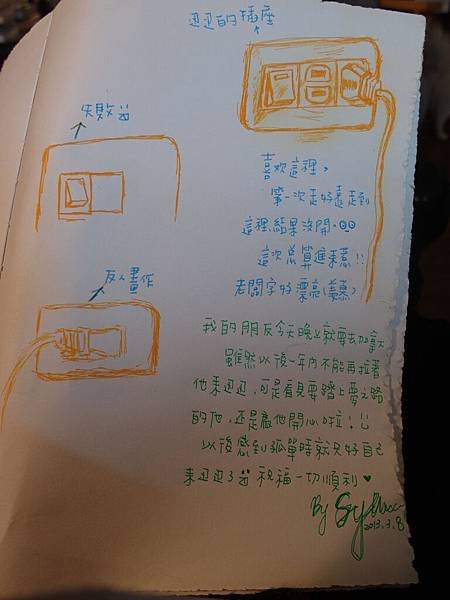 迌迌的插座
失敗
友人畫作
喜欢這裡,
第一次走好遠走到
這裡,結果沒開。
這次总算進來惹!!
老闆字好漂亮(羨慕)
我的朋友今天晚上就要去加拿大
雖然以後一年內不能再拉著
他來迌迌,可是看見要踏上夢之路
的他,還是為他開心啦!
以後感到孤單時就只好自己
來迌迌了 祝福一切順利♥
By
2013.3.8